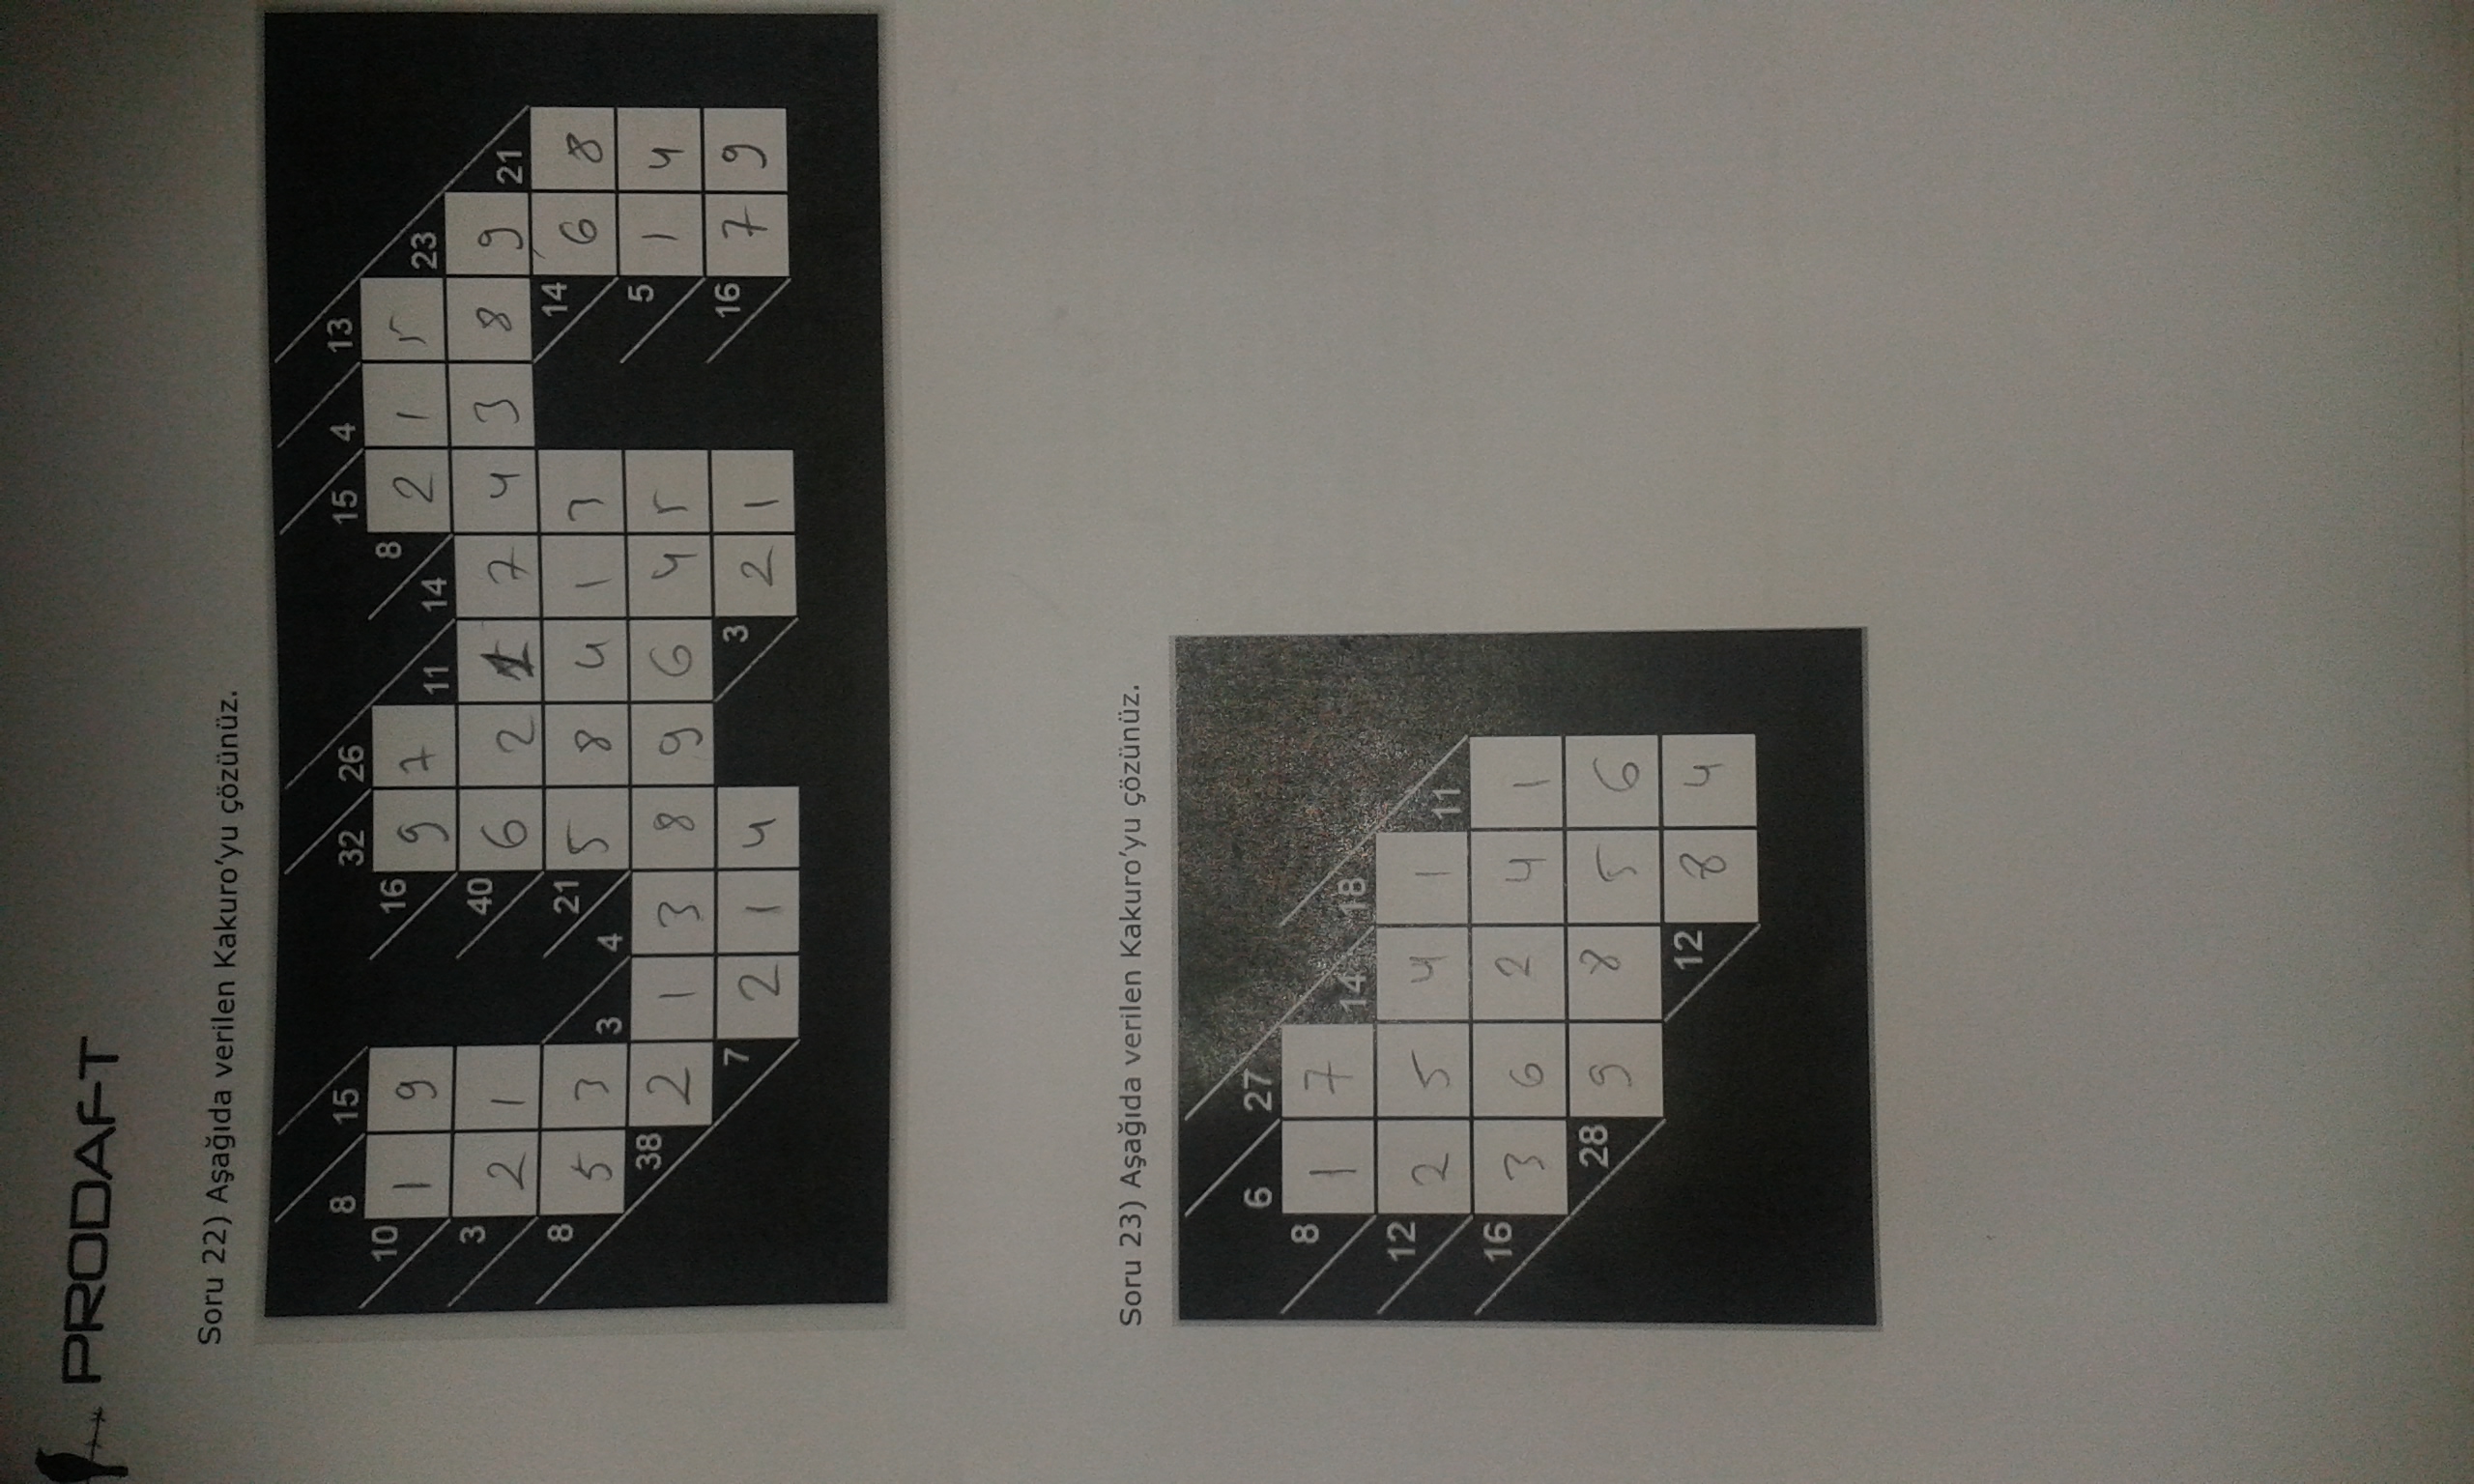 PRODAFT
Soru 22) Aşağıda verilen Kakuro'yu çözünüz.
8 15 32 26 15 4 13
10 1 9 16 9 7 11 14 8 2 1 5 23
3 2 1 40 6 2 1 7 4 3 8 9 21
8 5 3 3 4 21 5 8 4 1 3 14 6 8
38 2 1 3 8 9 6 4 5 5 1 4
7 2 1 4 3 2 1 16 7 9
Soru 23) Aşağıda verilen Kakuro'yu çözünüz.
6 27
8 1 7 14 18
12 2 5 4 1 11
16 3 6 2 4 1
28 9 8 5 6
12 8 4